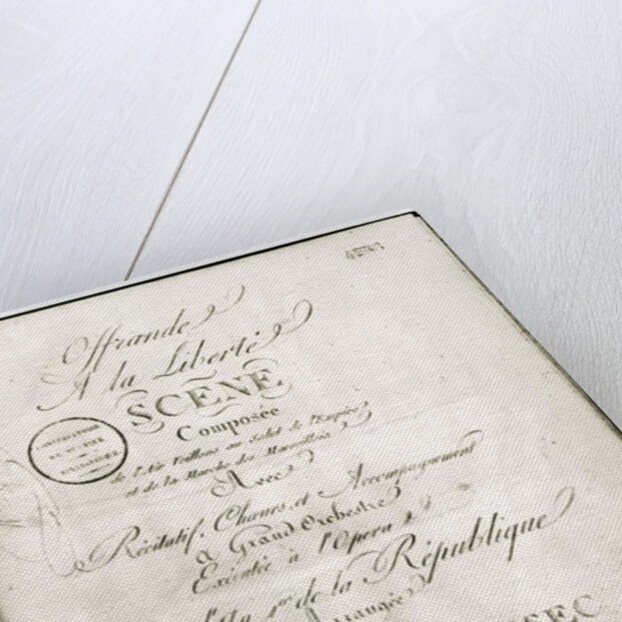 Offrande
A la Liberté
SCÈNE
Composée
de l'Air Veillons au Salut de l'Empire
et de la Marche des Marseillois
Avec
Récitatif, Choeurs, et Accompagnement
a Grand Orchestre
Exécutée à l'Opera
l'An 1er de la République
Arrangée